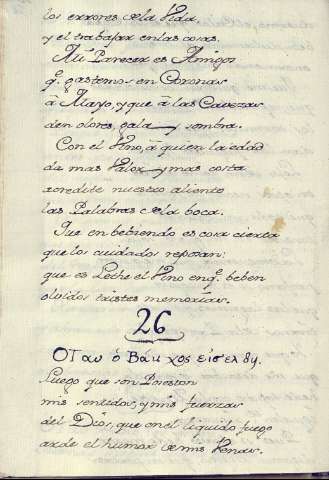 los errores de la Vida,
y el trabajar en las cosas.
Mi Parecer es Amigos
q. gastemos en Coronas
â Mayo, y que â las Cavezas
den olores, gala y sombra.
Con el Vino, â quien la edad
da mas Valor y mas costa
acredite nuestro aliento
las Palabras de la boca.
Que en bebiendo es cosa cierta
que los cuidados reposan:
que es Leche el Vino en q. beben
olvidos tristes memorias.
26
Οταν ὁ Βακχος εἰσελθη.
Luego que son Posession
mis sentidos, y mis fuerzas
del Dios, que en el liquido fuego
arde el humor de mis Venas.